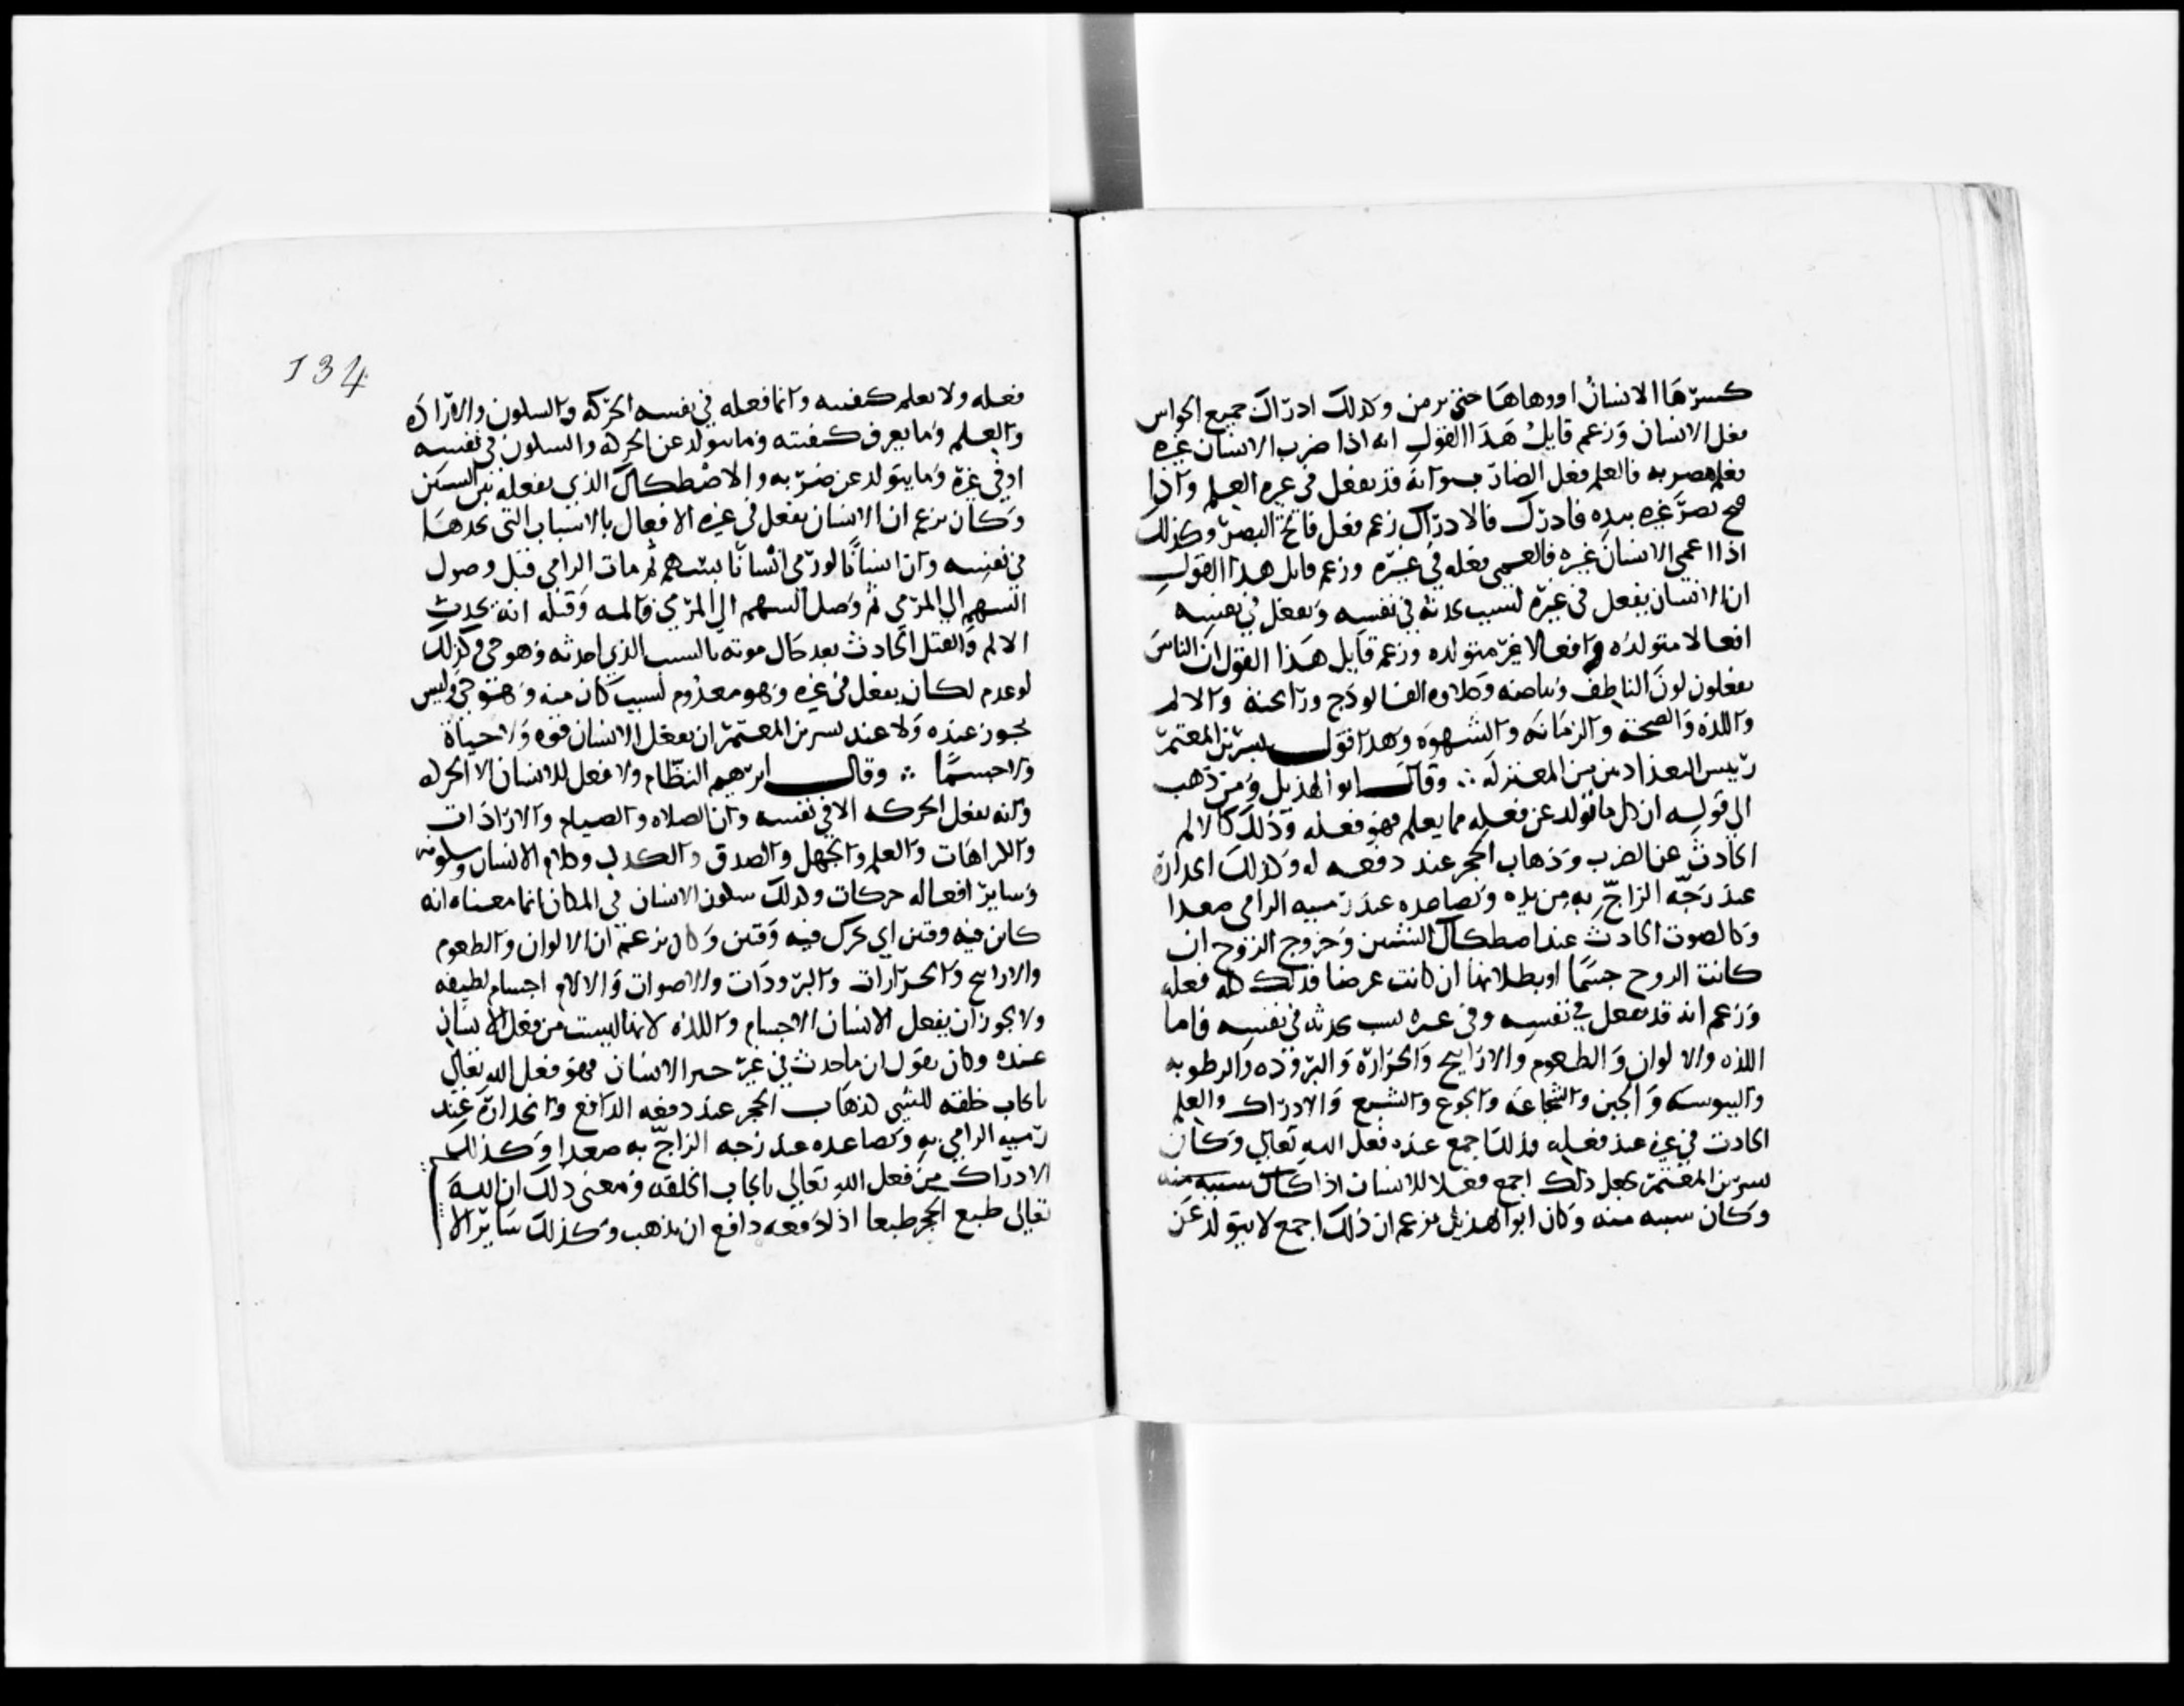 كسرها الانسان اووهاها حتى يزمن وكذلك ادراك جميع الحواس
فعل الانسان وزعم قايل هذا القول انه اذا ضرب الانسان غيره
فعلم ضربه فالعلم فعل الضارب وانه قد يفعل في غيره العلم واذا
فتح بصر غيره بيده فادرك فالادراك زعم فعل فاتح البصر وكذلك
اذا اعمى الانسان غيره فالعمى فعله في غيره وزعم قايل هذا القول
ان الانسان يفعل في غيره لسبب يحدثه في نفسه ويفعل في نفسه
افعالا متولده وافعالا غير متولده وزعم قايل هذا القول ان الناس
يفعلون لون الناطف وبياضه وحلاوه الفالوذج ورايحته والالم
واللذه والصحة والزمانه والشهوه وهذا قول بشر بن المعتمر
رييس البغداديين من المعتزله ∴ وقال ابو الهذيل ومن ذهب
الى قوله ان كل ما تولد عن فعله مما يعلم فهو فعله وذلك كالالم
الحادث عن الضرب وذهاب الحجر عند دفعه له وكذلك انحداره
عند زجه الزاج به من يده وتصاعده عند رميه الرامي صعدا
وكالصوت الحادث عند اصطكاك الشيئين وخروج الروح ان
كانت الروح جسما او بطلانها ان كانت عرضا فذلك كله فعله
وزعم انه قد يفعل في نفسه وفي غيره لسبب يحدثه في نفسه فاما
اللذه والالوان والطعوم والاراييح والحرارة والبروده والرطوبه
واليبوسه والجبن والشجاعه والجوع والشبع والادراك والعلم
الحادث في غيره عند فعله فذلك اجمع عنده فعل الله تعالى وكان
بشر بن المعتمر يجعل ذلك اجمع فعلا للانسان اذا كان سببه منه
وكان سببه منه وكان ابو الهذيل يزعم ان ذلك اجمع لا يتولد عن
134
فعله ولا يعلم كيفيته وانما فعله في نفسه الحركه والسكون والاراده
والعلم وما يعرف كيفيته وما يتولد عن الحركه والسكون في نفسه
او في غيره وما يتولد عن ضربه والاصطكاك الذي يفعله بين الشيئين
وكان يزعم ان الانسان يفعل في غيره الافعال بالاسباب التي يحدثها
في نفسه وان انسانا لو رمى انسانا بسهم ثم مات الرامي قبل وصول
السهم الى المرمي ثم وصل السهم الى المرمي فالمه وقتله انه يحدث
الالم والقتل الحادث بعد حال موته بالسبب الذي احدثه وهو حي وكذلك
لو عدم لكان يفعل في غيره وهو معدوم لسبب كان منه وهو حي وليس
يجوز عنده ولا عند بشر بن المعتمر ان يفعل الانسان قوه ولا حياة
ولا جسما ∴ وقال ابرهيم النظام ولا فعل للانسان الا الحركه
وانه يفعل الحركه الا في نفسه وان الصلاه والصيام والارادات
والكراهات والعلم والجهل والصدق والكذب وكلام الانسان وسكوته
وساير افعاله حركات وكذلك سكون الانسان في المكان انما معناه انه
كاين فيه وقتين اي تحرك فيه وقتين وكان يزعم ان الالوان والطعوم
والاراييح والحرارات والبرودات والاصوات والالام اجسام لطيفه
ولا يجوز ان يفعل الانسان الاجسام واللذه لانها ليست من فعل الانسان
عنده وكان يقول ان ما حدث في غير حيز الانسان فهو فعل الله تعالى
بايجاب خلقه للشي كذهاب الحجر عند دفعه الدافع وانحداره عند
رميه الرامي به وتصاعده عند زجه الزاج به صعدا وكذلك
الادراك من فعل الله تعالى بايجاب الخلقه ومعنى ذلك ان الله
تعالى طبع الحجر طبعا اذا دفعه دافع ان يذهب وكذلك ساير الا